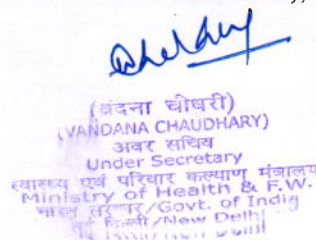 (वंदना चौधरी)
(VANDANA CHAUDHARY)
अवर सचिव
Under Secretary
स्वास्थ्य एवं परिवार कल्याण मंत्रालय
Ministry of Health & F.W.
भारत सरकार/Govt. of India
नई दिल्ली/New Delhi